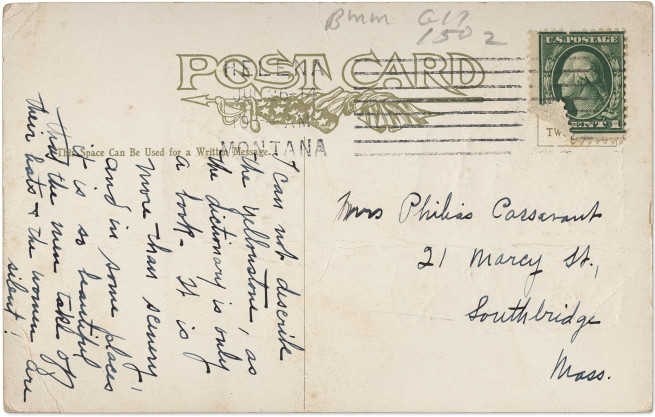 Bmm G17
1502
POST CARD
U.S. POSTAGE
HELENA
AM
MONTANA
CENT 1
TW
This Space Can Be Used for a Written Message.
I can not describe
the Yellowstone, as
the dictionary is only
a book. It is
more than scenery,
and in some places
it is so beautiful
that the men take off
their hats & the women are
silent!
Mrs Philias Cassavant
21 Marcy St.,
Southbridge
Mass.